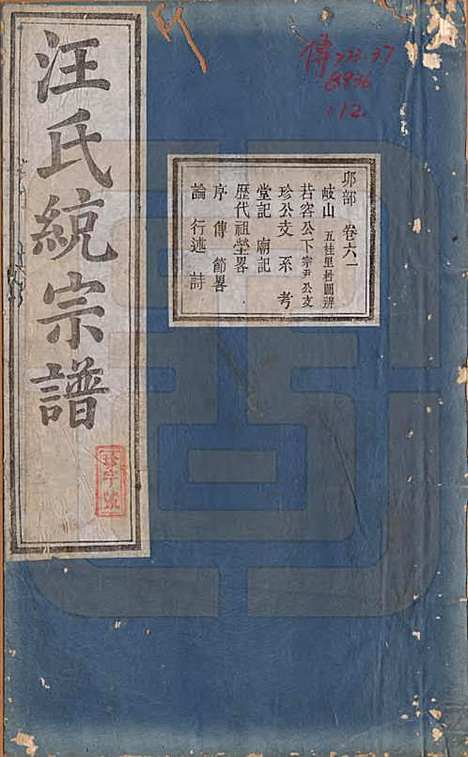 汪氏統宗譜
傳 323.37
8936
:12
卯部 卷六一
岐山 五桂里居圖辨
若容公下宗尹公支
珍公支 系考
堂記 廟記
歷代祖塋畧
序 傳 節畧
論 行述 詩